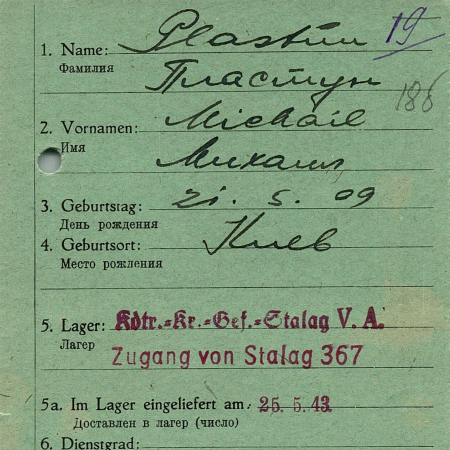 1. Name: Plastun 19
Фамилия Пластун
186
2. Vornamen: Michail
Имя Михаил
3. Geburtstag: 21. 5. 09
День рождения
4. Geburtsort: Киев
Место рожления
5. Lager: Kdtr.-Kr.-Gef.-Stalag V. A.
Лагер Zugang von Stalag 367
5a. Im Lager eingeliefert am: 25. 5. 43.
Доставлен в лагер (число)
6. Dienstgrad: